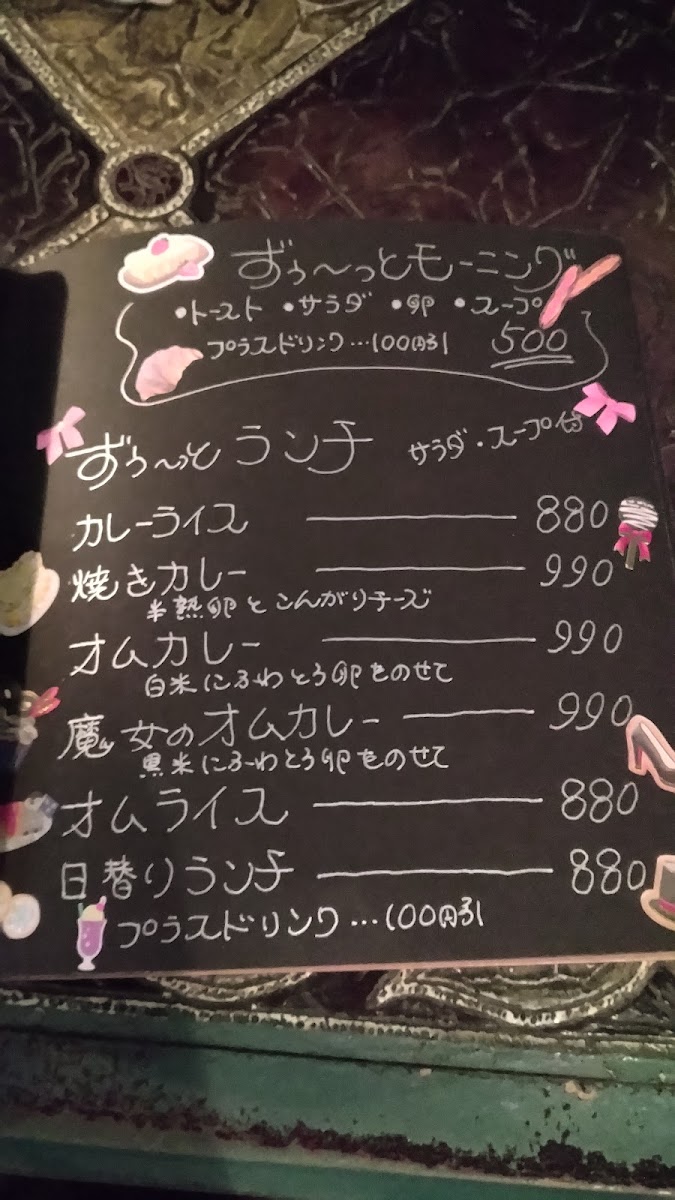 ずぅ〜っとモーニング
・トースト ・サラダ ・卵 ・スープ
プラスドリンク…100円引 500
ずぅ〜っとランチ サラダ・スープ付
カレーライス 880
焼きカレー 990
半熟卵とこんがりチーズ
オムカレー 990
白米にふわとろ卵をのせて
魔女のオムカレー 990
黒米にふわとろ卵をのせて
オムライス 880
日替りランチ 880
プラスドリンク…100円引